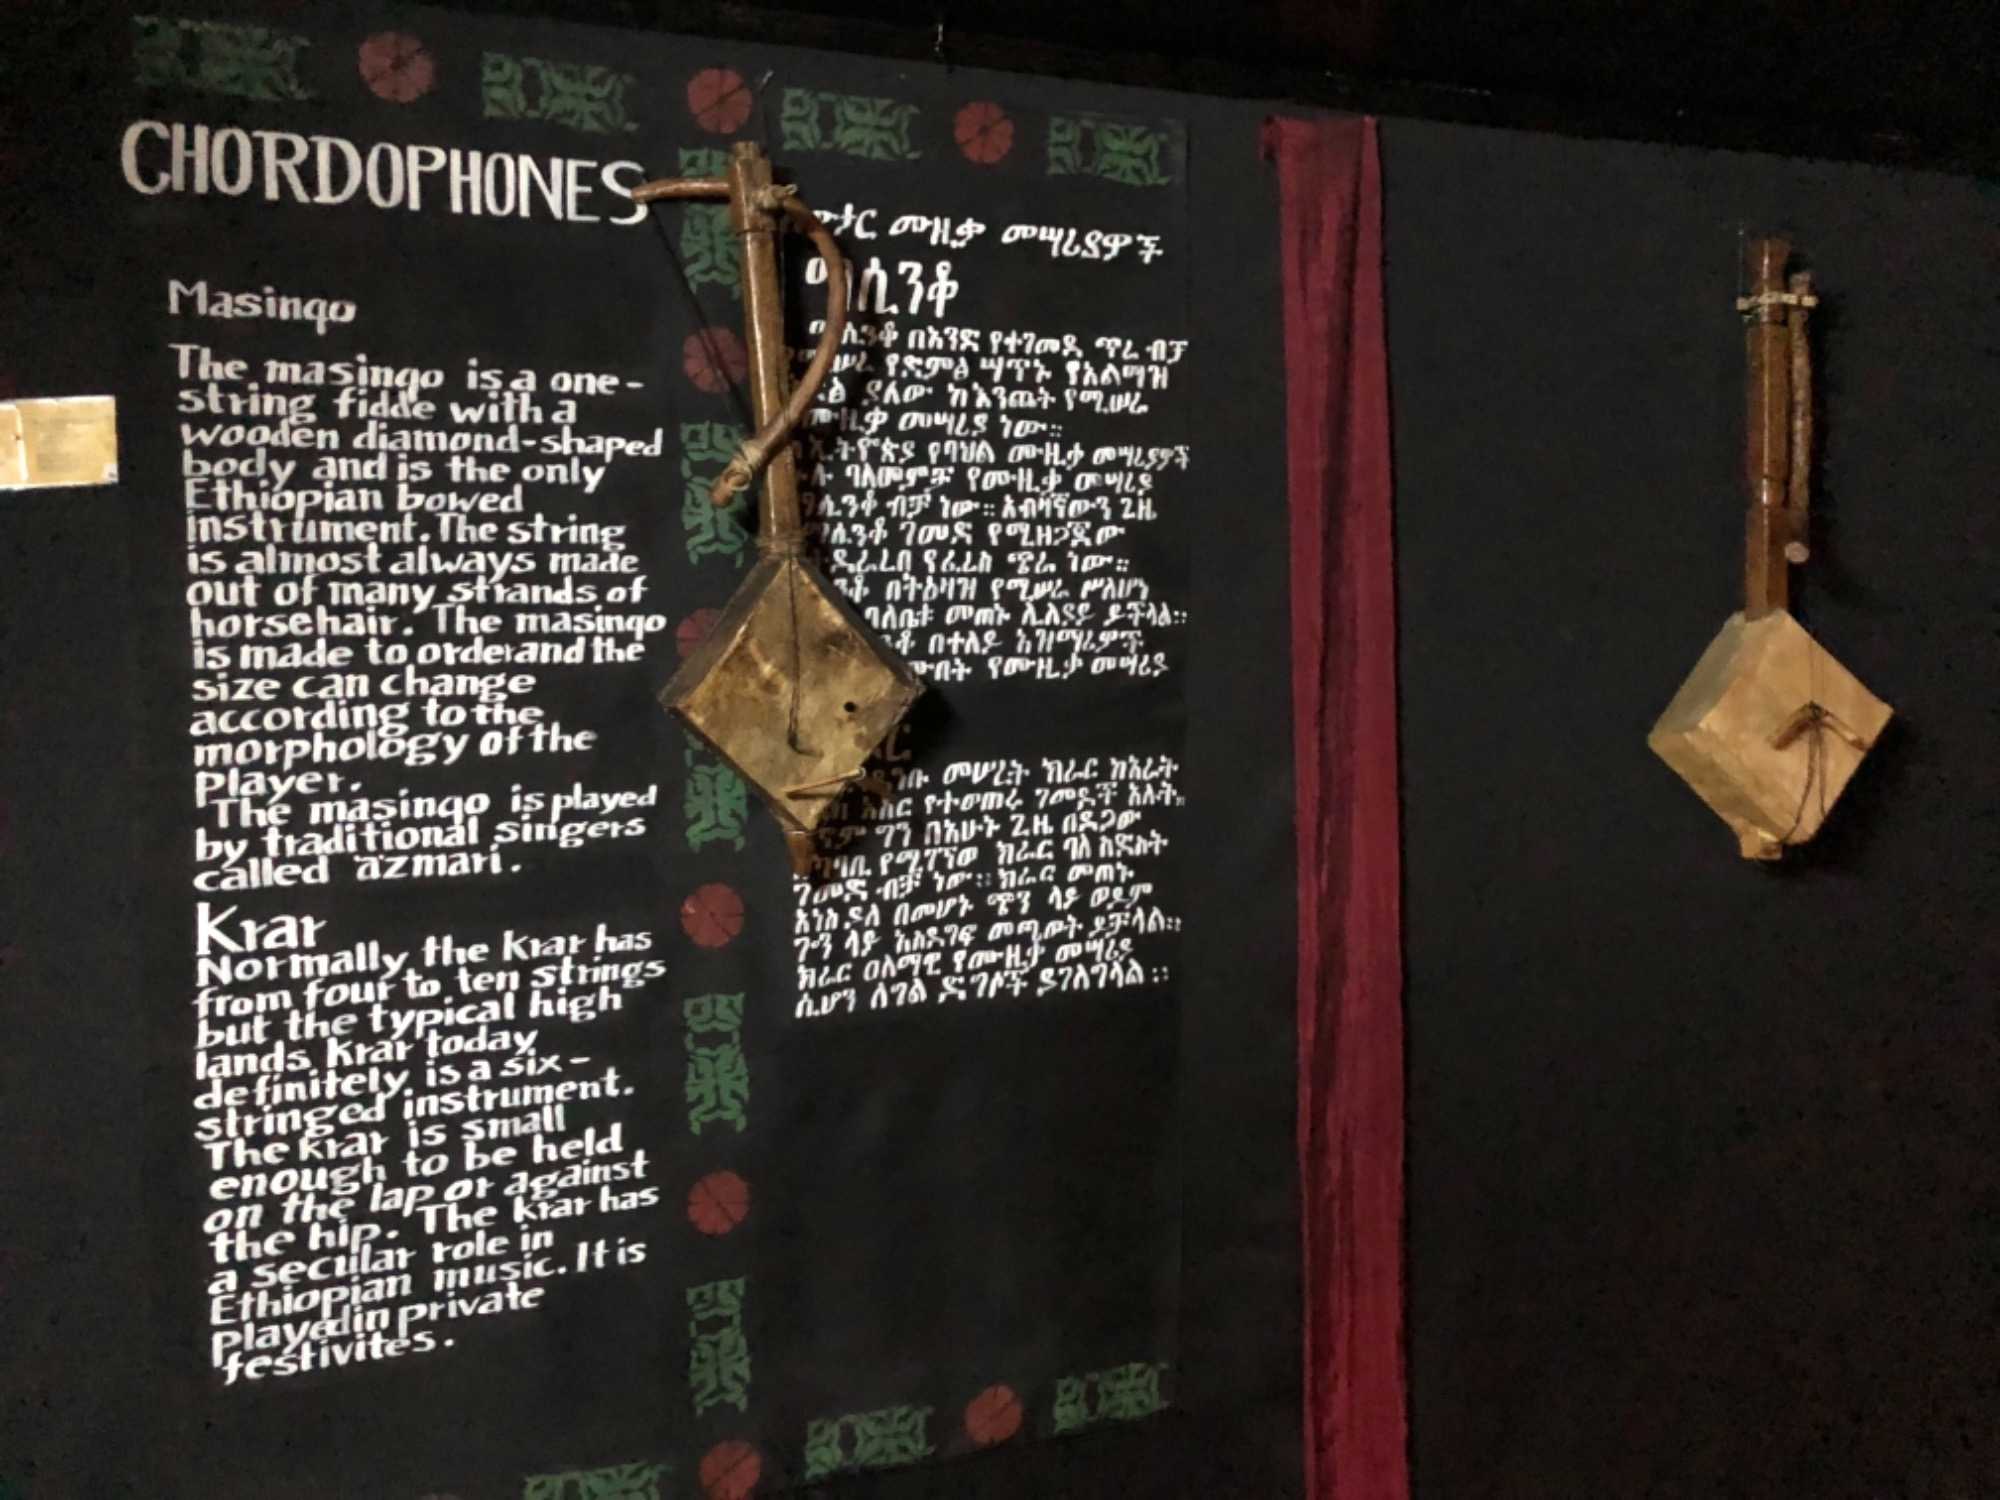 CHORDOPHONES
Masinqo
The masinqo is a one-
string fiddle with a
wooden diamond-shaped
body and is the only
Ethiopian bowed
instrument. The string
is almost always made
out of many strands of
horsehair. The masinqo
is made to order and the
size can change
according to the
morphology of the
player.
The masinqo is played
by traditional singers
called azmari.
Krar
Normally the krar has
from four to ten strings
but the typical high
lands krar today
definitely is a six-
stringed instrument.
The krar is small
enough to be held
on the lap or against
the hip. The krar has
a secular role in
Ethiopian music. It is
played in private
festivites.
ሙዚቃ መሣሪያዎች
ማሲንቆ
ማሲንቆ በአንድ የተገመደ ጥሬ ብቻ
የድምፅ ሣጥኑ የአልማዝ
ያለው ከእንጨት የሚሠራ
ሙዚቃ መሣሪያ ነው።
የባህል ሙዚቃ መሣሪያዎች
ባለመምቻ የሙዚቃ መሣሪያ
ማሲንቆ ብቻ ነው። አብዛኛውን ጊዜ
ማሲንቆ ገመድ የሚዘጋጀው
የፈረስ ጭራ ነው።
በትዕዛዝ የሚሠራ ሥለሆነ
መጠኑ ሊለያይ ይችላል።
በተለይ አዝማሪዎች
የሙዚቃ መሣሪያ
መሠረት ክራር ከአራት
አስር የተወጠሩ ገመዶች አሉት።
ግን በአሁኑ ጊዜ በደጋው
የሚገኘው ክራር ባለ ስድስት
ገመድ ብቻ ነው። ክራር መጠኑ
አነስ ያለ በመሆኑ ጭን ላይ ወይም
ጐን ላይ አስደግፎ መጫወት ይቻላል።
ክራር ዐለማዊ የሙዚቃ መሣሪያ
ሲሆን ለግል ድግሶች ያገለግላል።